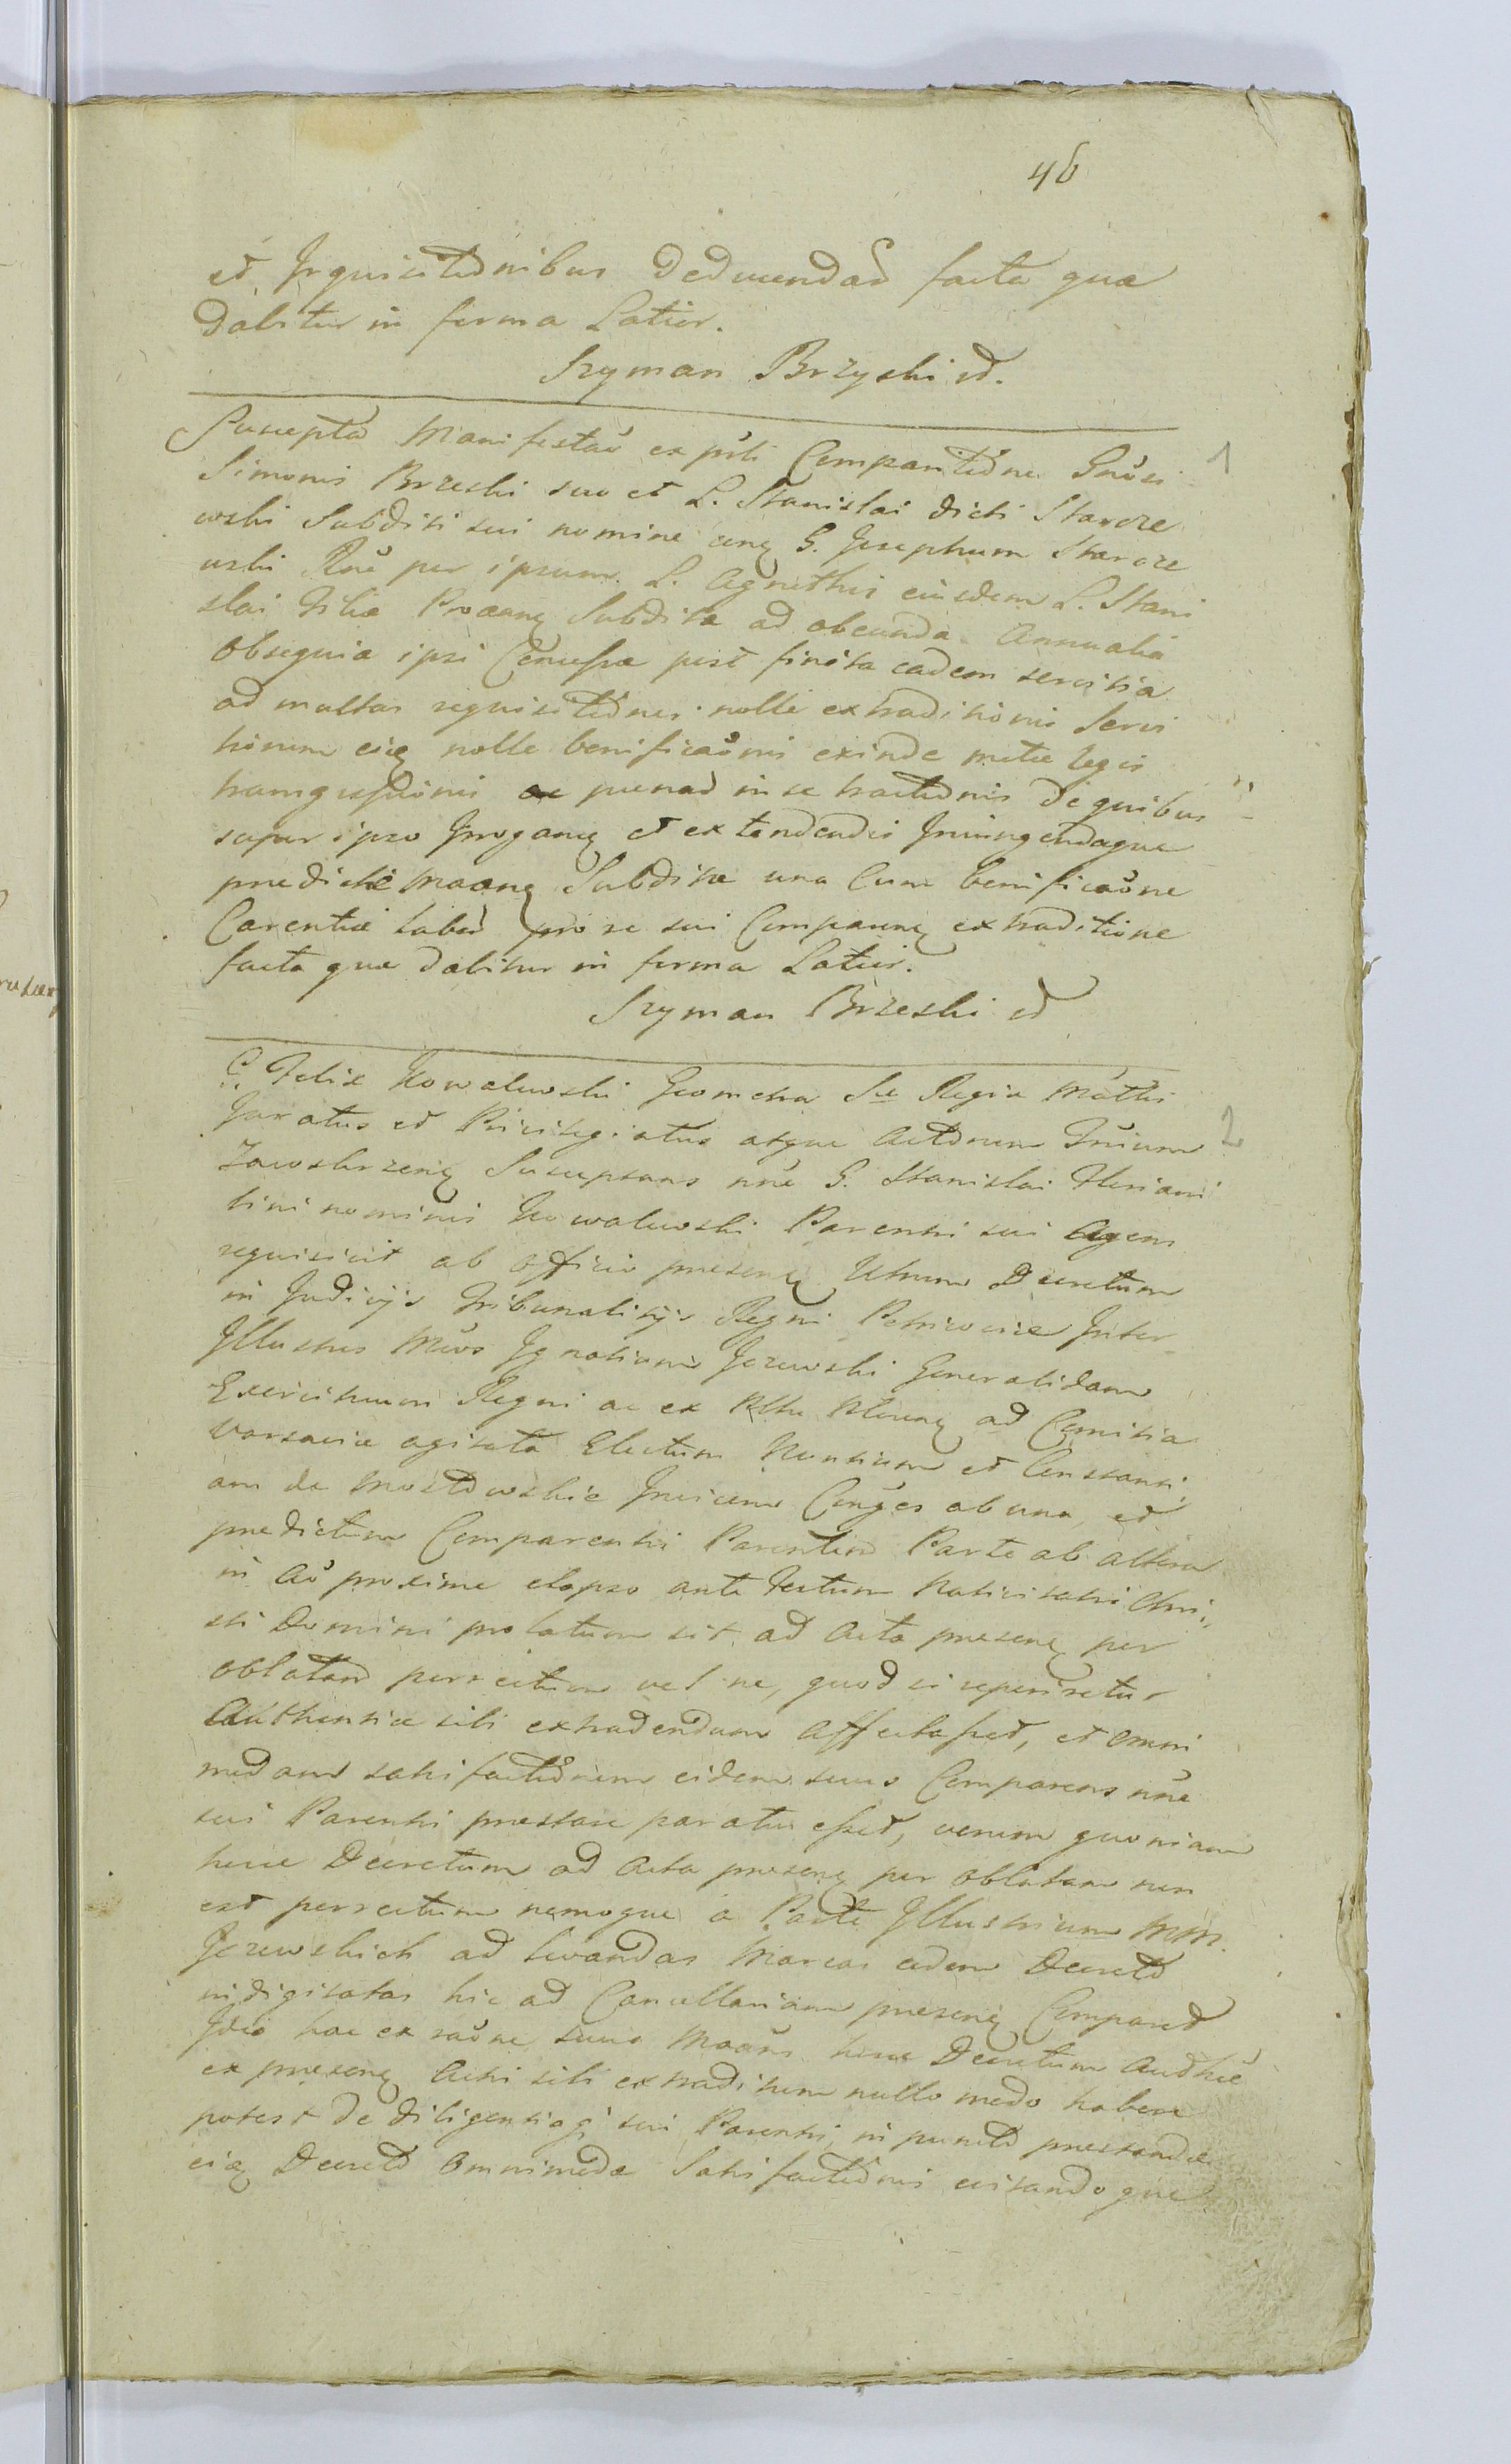 46
et Inquisitionibus Deducendas facta quæ
Dabitur in forma Latior.
Szyman Brzyski
Suscepta Manifestaō ex pŕti Comparitiōne Gnōsi
Simonis Brzeski suo et L. Stanislai dicti Starcze
wski Subditi sui nomine G. Josephum Starcze
wski per ipsum L. Agnethis eiusdem L. Stani
slai Filiæ Subditæ ad obeunda Annualia
Obsequia ipsi Concessæ post finita eadem servitia
ad multas requisitiōnes nolle extraditionis Servi
nolle benificaōnis exinde metæ legis
transgressionis ac penas in se tractiōnis de quibus
super ipso et extendendis Iniungendaque
predictæ Subditæ una Cum benificaōne
Carentiæ pro se sui extraditione
facta quæ dabitur in forma Latior.
Szyman Brzeski
G. Felix Kowalewski Geometra Sæ Regiæ Mattis
Juratus et Privilegiatus atque Actorum
Susceptans nne G. Stanislai
bini nominis Kowalewski Parentis sui Agens
requisivit ab Officio presenę Utrum Decretum
in Judicijs Tribunalitijs Regni Petricoviæ Inter
Illustres Ignatium Jezewski Generalidam
Exercituum Regni ac ex ad Comitia
Varsaviæ agitata Electum Nuntium et Constanti
am de Mostowskie Invicem Cōnges ab una, et
predictum Comparentis Parentem Parte ab altera
in Aō proxime elapso ante Festum Nativitatis Chri„
sti Domini prolatum sit, ad Acta presenę per
Oblatam porrectum vel ne, quod si reperiretur
Authentice sibi extradendum Affectasset, et omni
modam satisfactiōnem eidem suus Comparens nne
sui Parentis prestare paratus esset, verum quoniam
hocce Decretum ad Acta presenę per Oblatam non
est porrectum nemoque a Parte Illustrium MM.
Jezewskich ad levandas Marcas eodem Decreto
indigitatas hic ad Cancellariam presenę Comparet
Ideo hac ex raōne suus hocce Decretum Authce
ex presenę Actis sibi extraditum nullo modo habere
potest de diligentiaq sui Parentis in puncto prestandæ
eię Decreto Omnimodæ Satisfactiōnis evitandoque